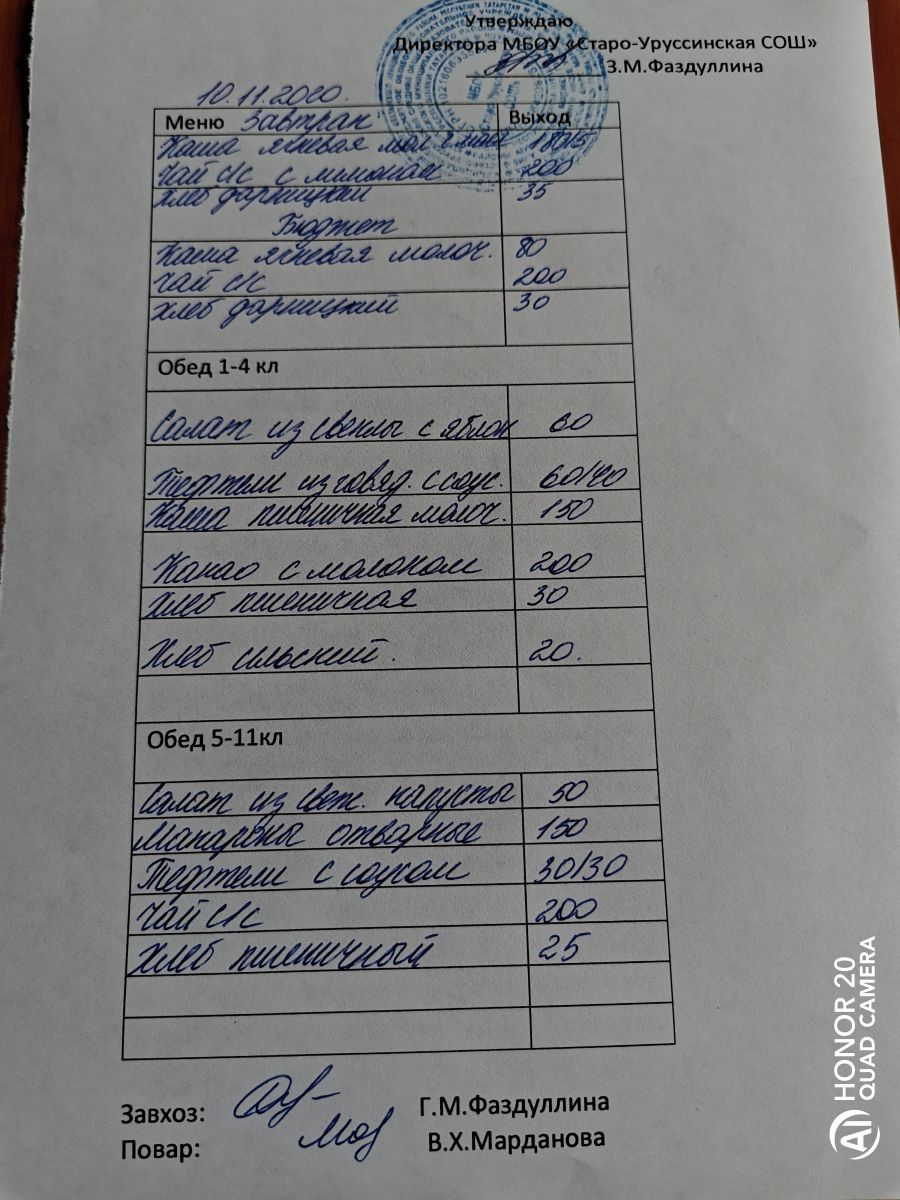 Утверждаю
Директора МБОУ «Старо-Уруссинская СОШ»
З.М.Фаздуллина
10.11.2020.
Меню Завтрак Выход
Каша ячневая мол 180/5
Чай с/с с лимоном 200
Хлеб дарницкий 35
Бюджет
Каша ячневая молоч. 80
Чай с/с 200
Хлеб дарницкий 30
Обед 1-4 кл
Салат из свеклы с яблок 60
Тефтели из говяд. с соус. 60/40
Каша пшеничная молоч. 150
Какао с молоком 200
Хлеб пшеничная 30
Хлеб сельский. 20.
Обед 5-11кл
Салат из свеж. капусты 50
Макароны отварные 150
Тефтели с соусом 30/30
Чай с/с 200
Хлеб пшеничный 25
Завхоз: Г.М.Фаздуллина
Повар: В.Х.Марданова
HONOR 20
QUAD CAMERA